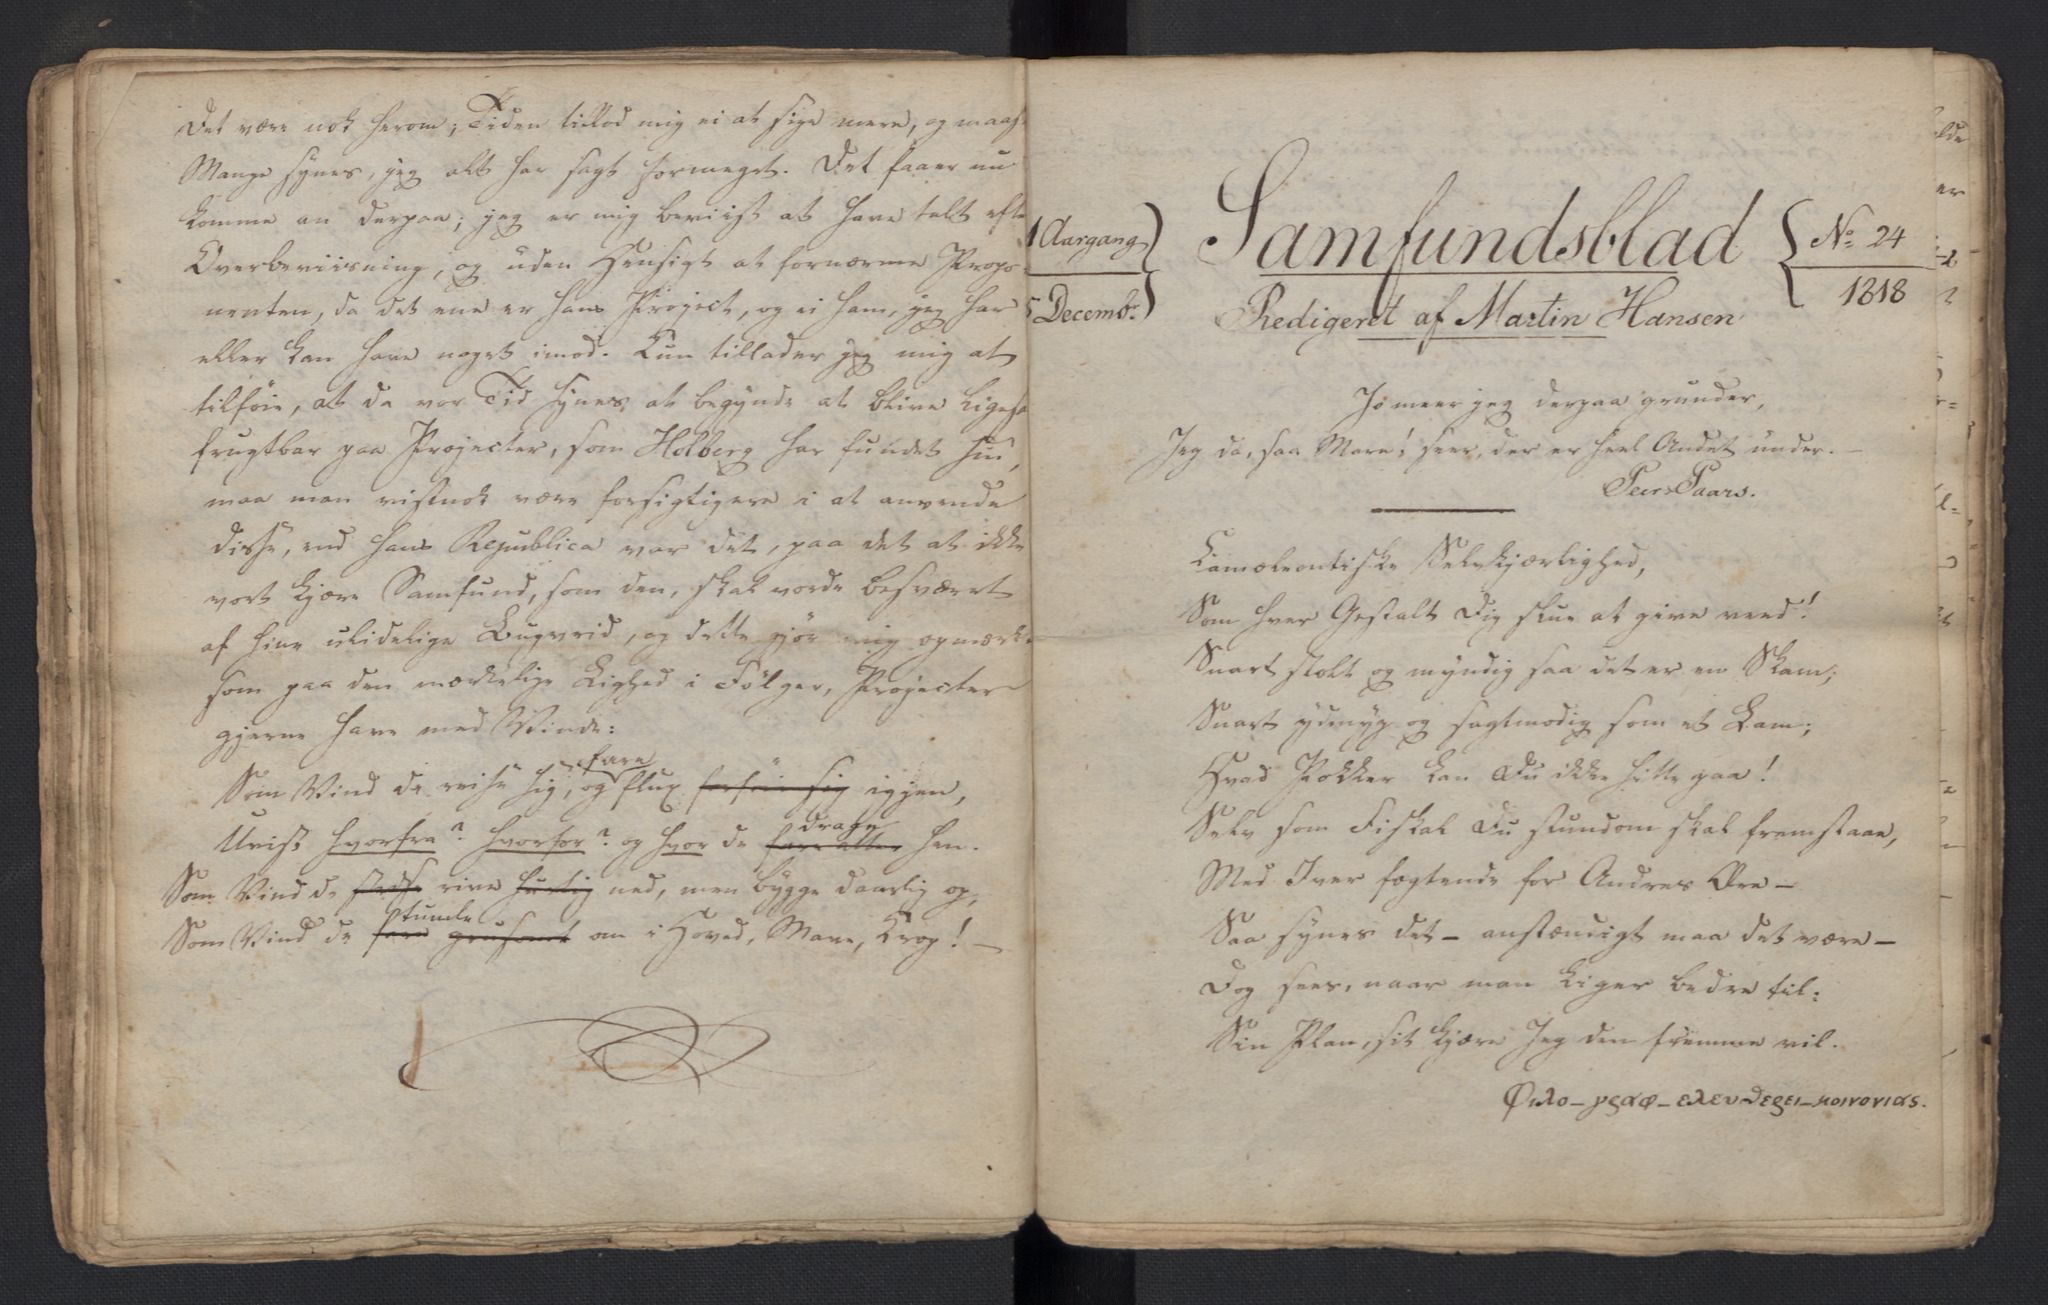 Det være nok herom; Tiden tillod mig ei at sige mere, og maaf
Mange synes, jeg alt har sagt formeget. Det faaer nu
komme an derpaa; jeg er mig beviist at have talt efte
Overbeviisning, og uden Hensigt at fornærme Propo-
nenten, da det ene er hans Project, og ei ham, jeg har
eller kan have noget imod. Kun tillader jeg mig at
tilføie, at da vor Tid synes at begynde at blive ligesa
frugtbar paa Projecter, som Holberg har fundet sin,
maa man vistnok være forsigtigere i at anvende
disse, end hans Republica var det, paa det at ikke
vort kjære Samfund, som den, skal vorde besværet
af hine ulidelige Bugvrid, og dette gjør mig opmærk-
som paa den mærkelige Lighed i Følger, Projecter
gjerne have med Vinde:
fare
Som Vind de reise sig, og flux forføie sig igjen,
drage
Uvist hvorfra? hvorfor? og hvor de fare atter hen.
Som Vind de rive hurtig ned, men bygge daarlig op,
stumle
Som Vind de fare grusomt om i Hoved, Mave, Krop! —
1 Aargang
5 Decembr.
Samfundsblad
No 24
1818
Redigeret af Martin Hansen
Jo meer jeg derpaa grunder,
Jeg da, saa Mare! seer, der er heel Andet under. —
Peer Paars.
Camæleontiske Selvkjærlighed,
Som hver Gestalt Dig flux at give veed!
Snart stolt og myndig saa det er en Skam;
Snart ydmyg og sagtmodig som et Lam;
Hvad Pokker kan Du ikke hitte paa!
Selv som Fiskal Du stundom skal fremstaae,
Med Iver fægtende for Andres Ære —
Saa synes det — anstændigt maa det være —
Dog sees, naar man kiger bedre til:
Sin Plan, sit kjære Jeg den fremme vil.
Φιλο–γραφ–ελευθερει–κοινονιας.